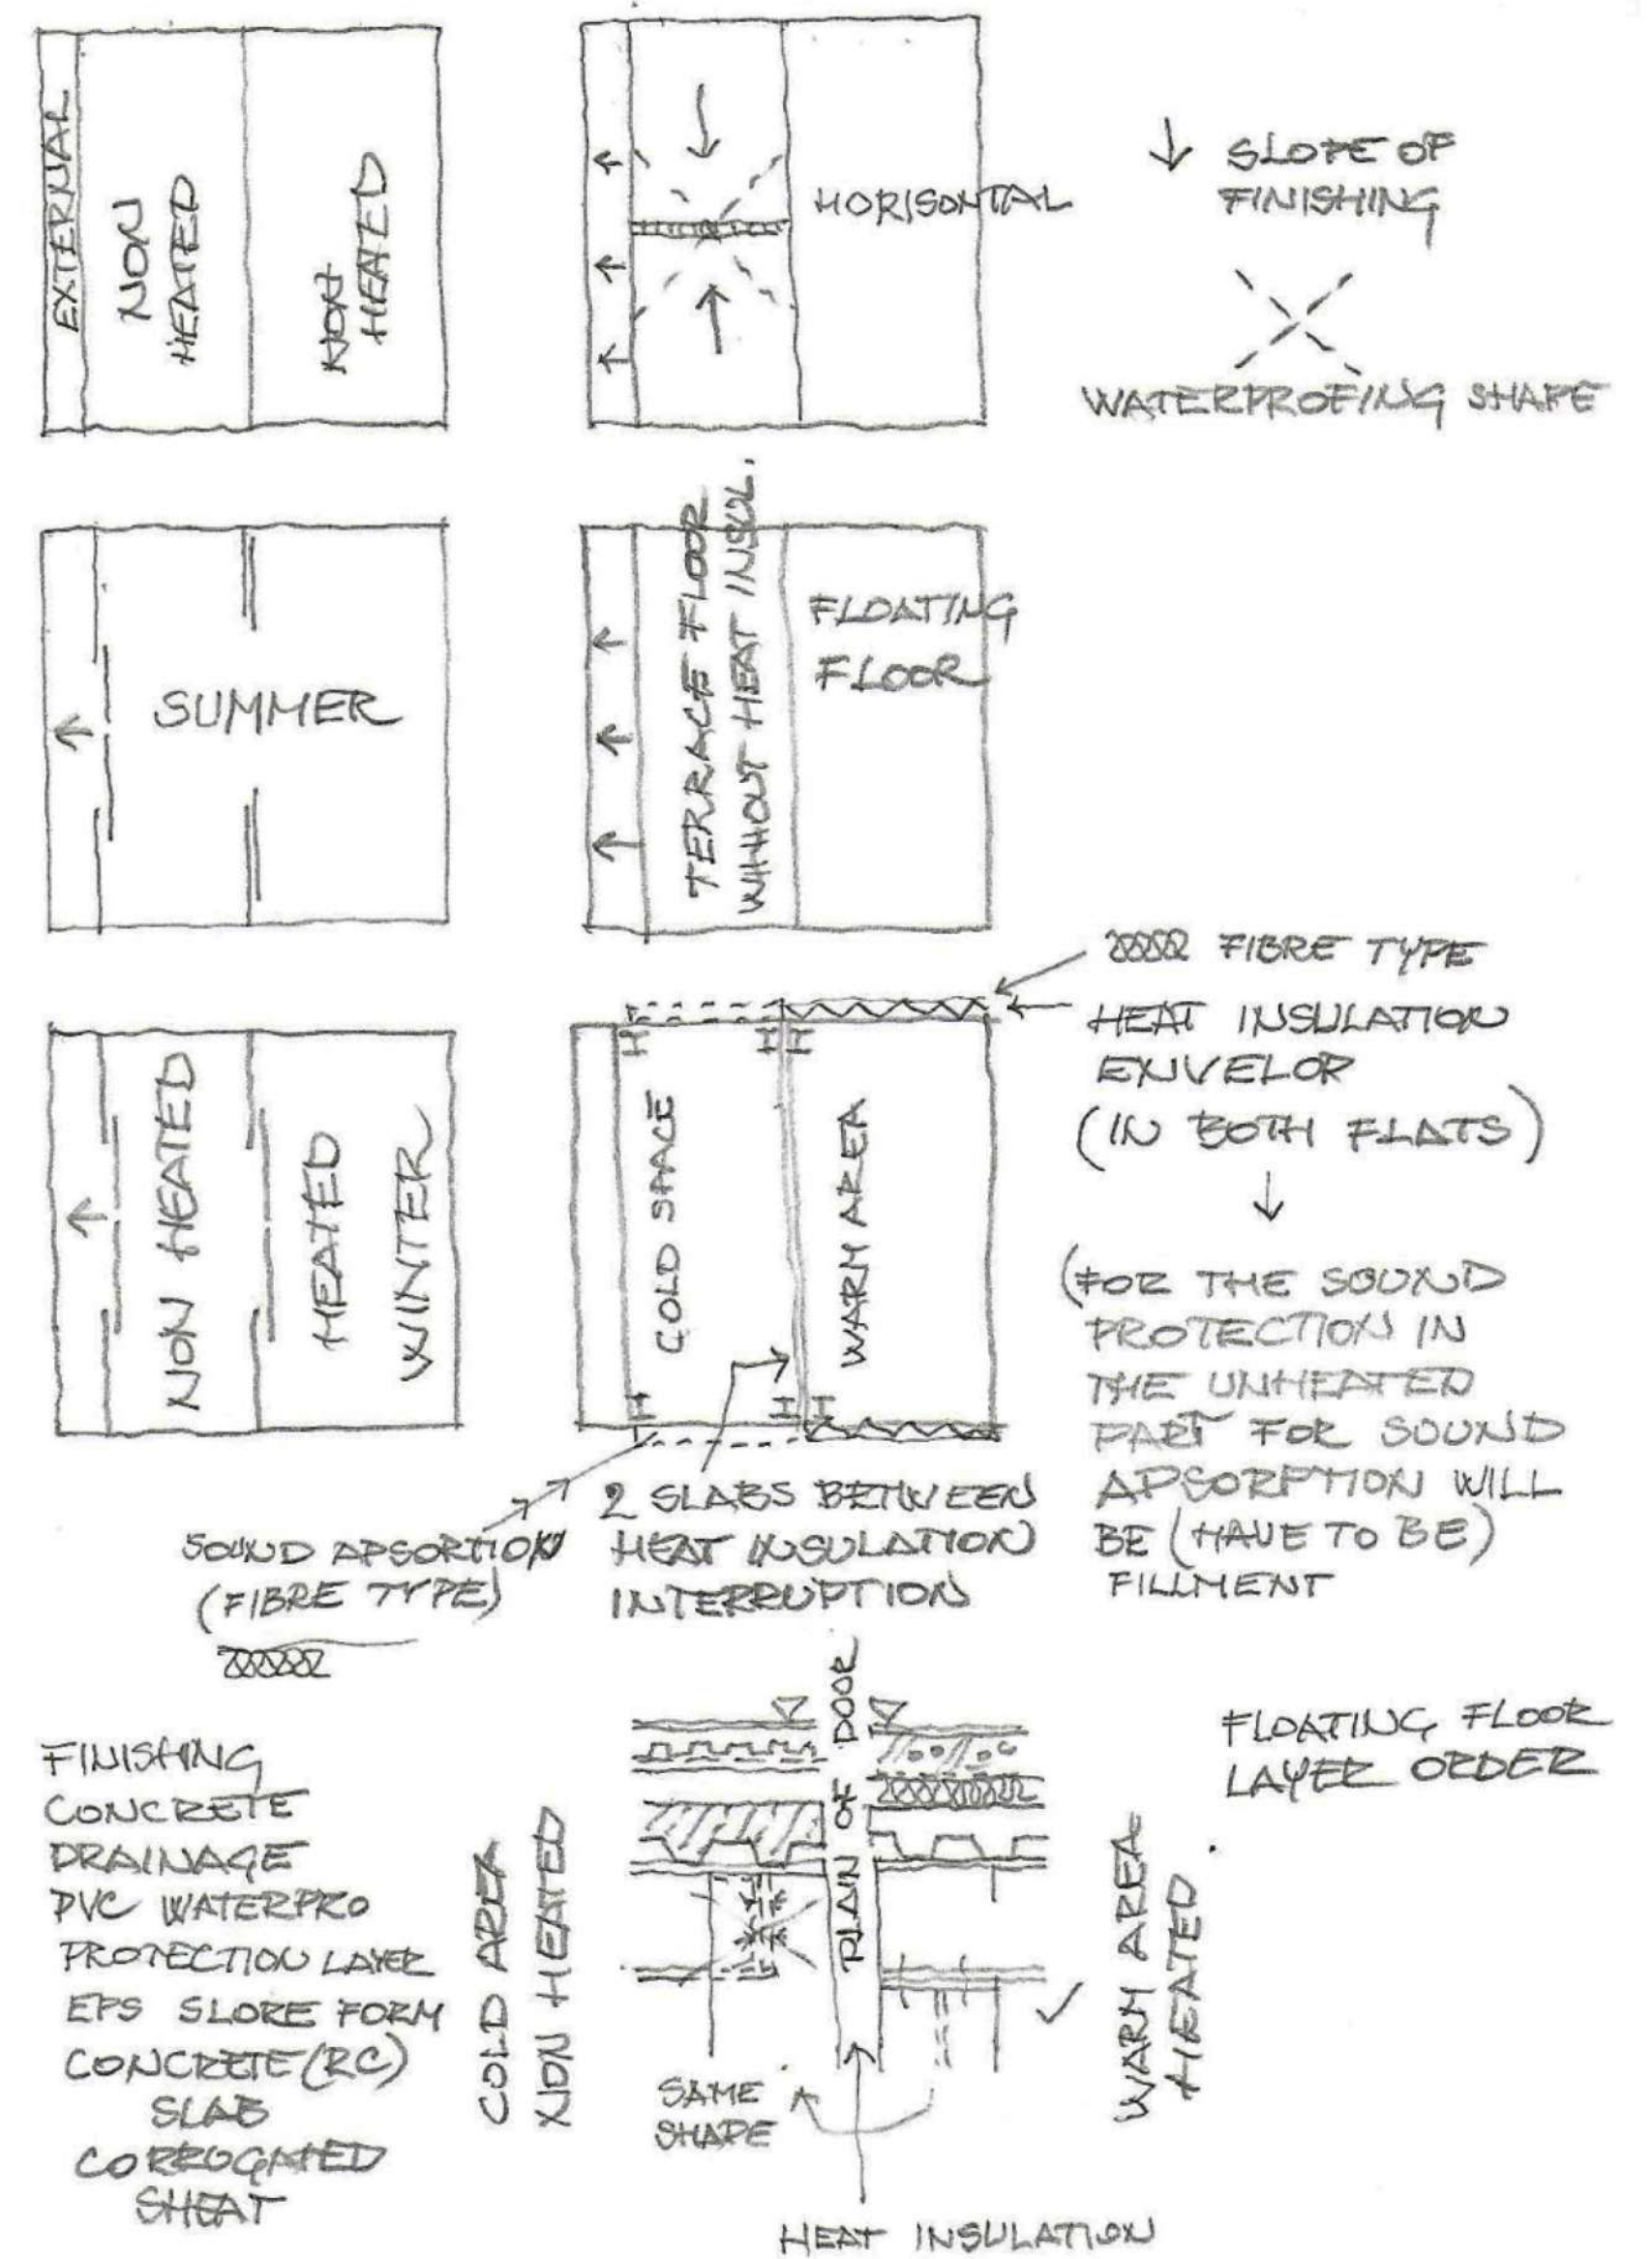 EXTERNAL
NON
HEATED
NON
HEATED
HORISONTAL
SLOPE OF
FINISHING
WATERPROFING SHAPE
SUMMER
TERRACE FLOOR
WHHOUT HEAT INSUL.
FLOATING
FLOOR
NON HEATED
HEATED
WINTER
COLD SPACE
WARM AREA
FIBRE TYPE
HEAT INSULATION
ENVELOP
(IN BOTH FLATS)
(FOR THE SOUND
PROTECTION IN
THE UNHEATED
PART FOR SOUND
APSORPTION WILL
BE (HAVE TO BE)
FILLMENT
SOUND APSORTION
(FIBRE TYPE)
2 SLABS BETWEEN
HEAT INSULATION
INTERRUPTION
FINISHING
CONCRETE
DRAINAGE
PVC WATERPRO
PROTECTION LAYER
EPS SLOPE FORM
CONCRETE (RC)
SLAB
CORROGATED
SHEAT
COLD AREA
NON HEATED
PLAIN OF DOOR
WARM AREA
HEATED
FLOATING FLOOR
LAYER ORDER
SAME
SHAPE
HEAT INSULATION